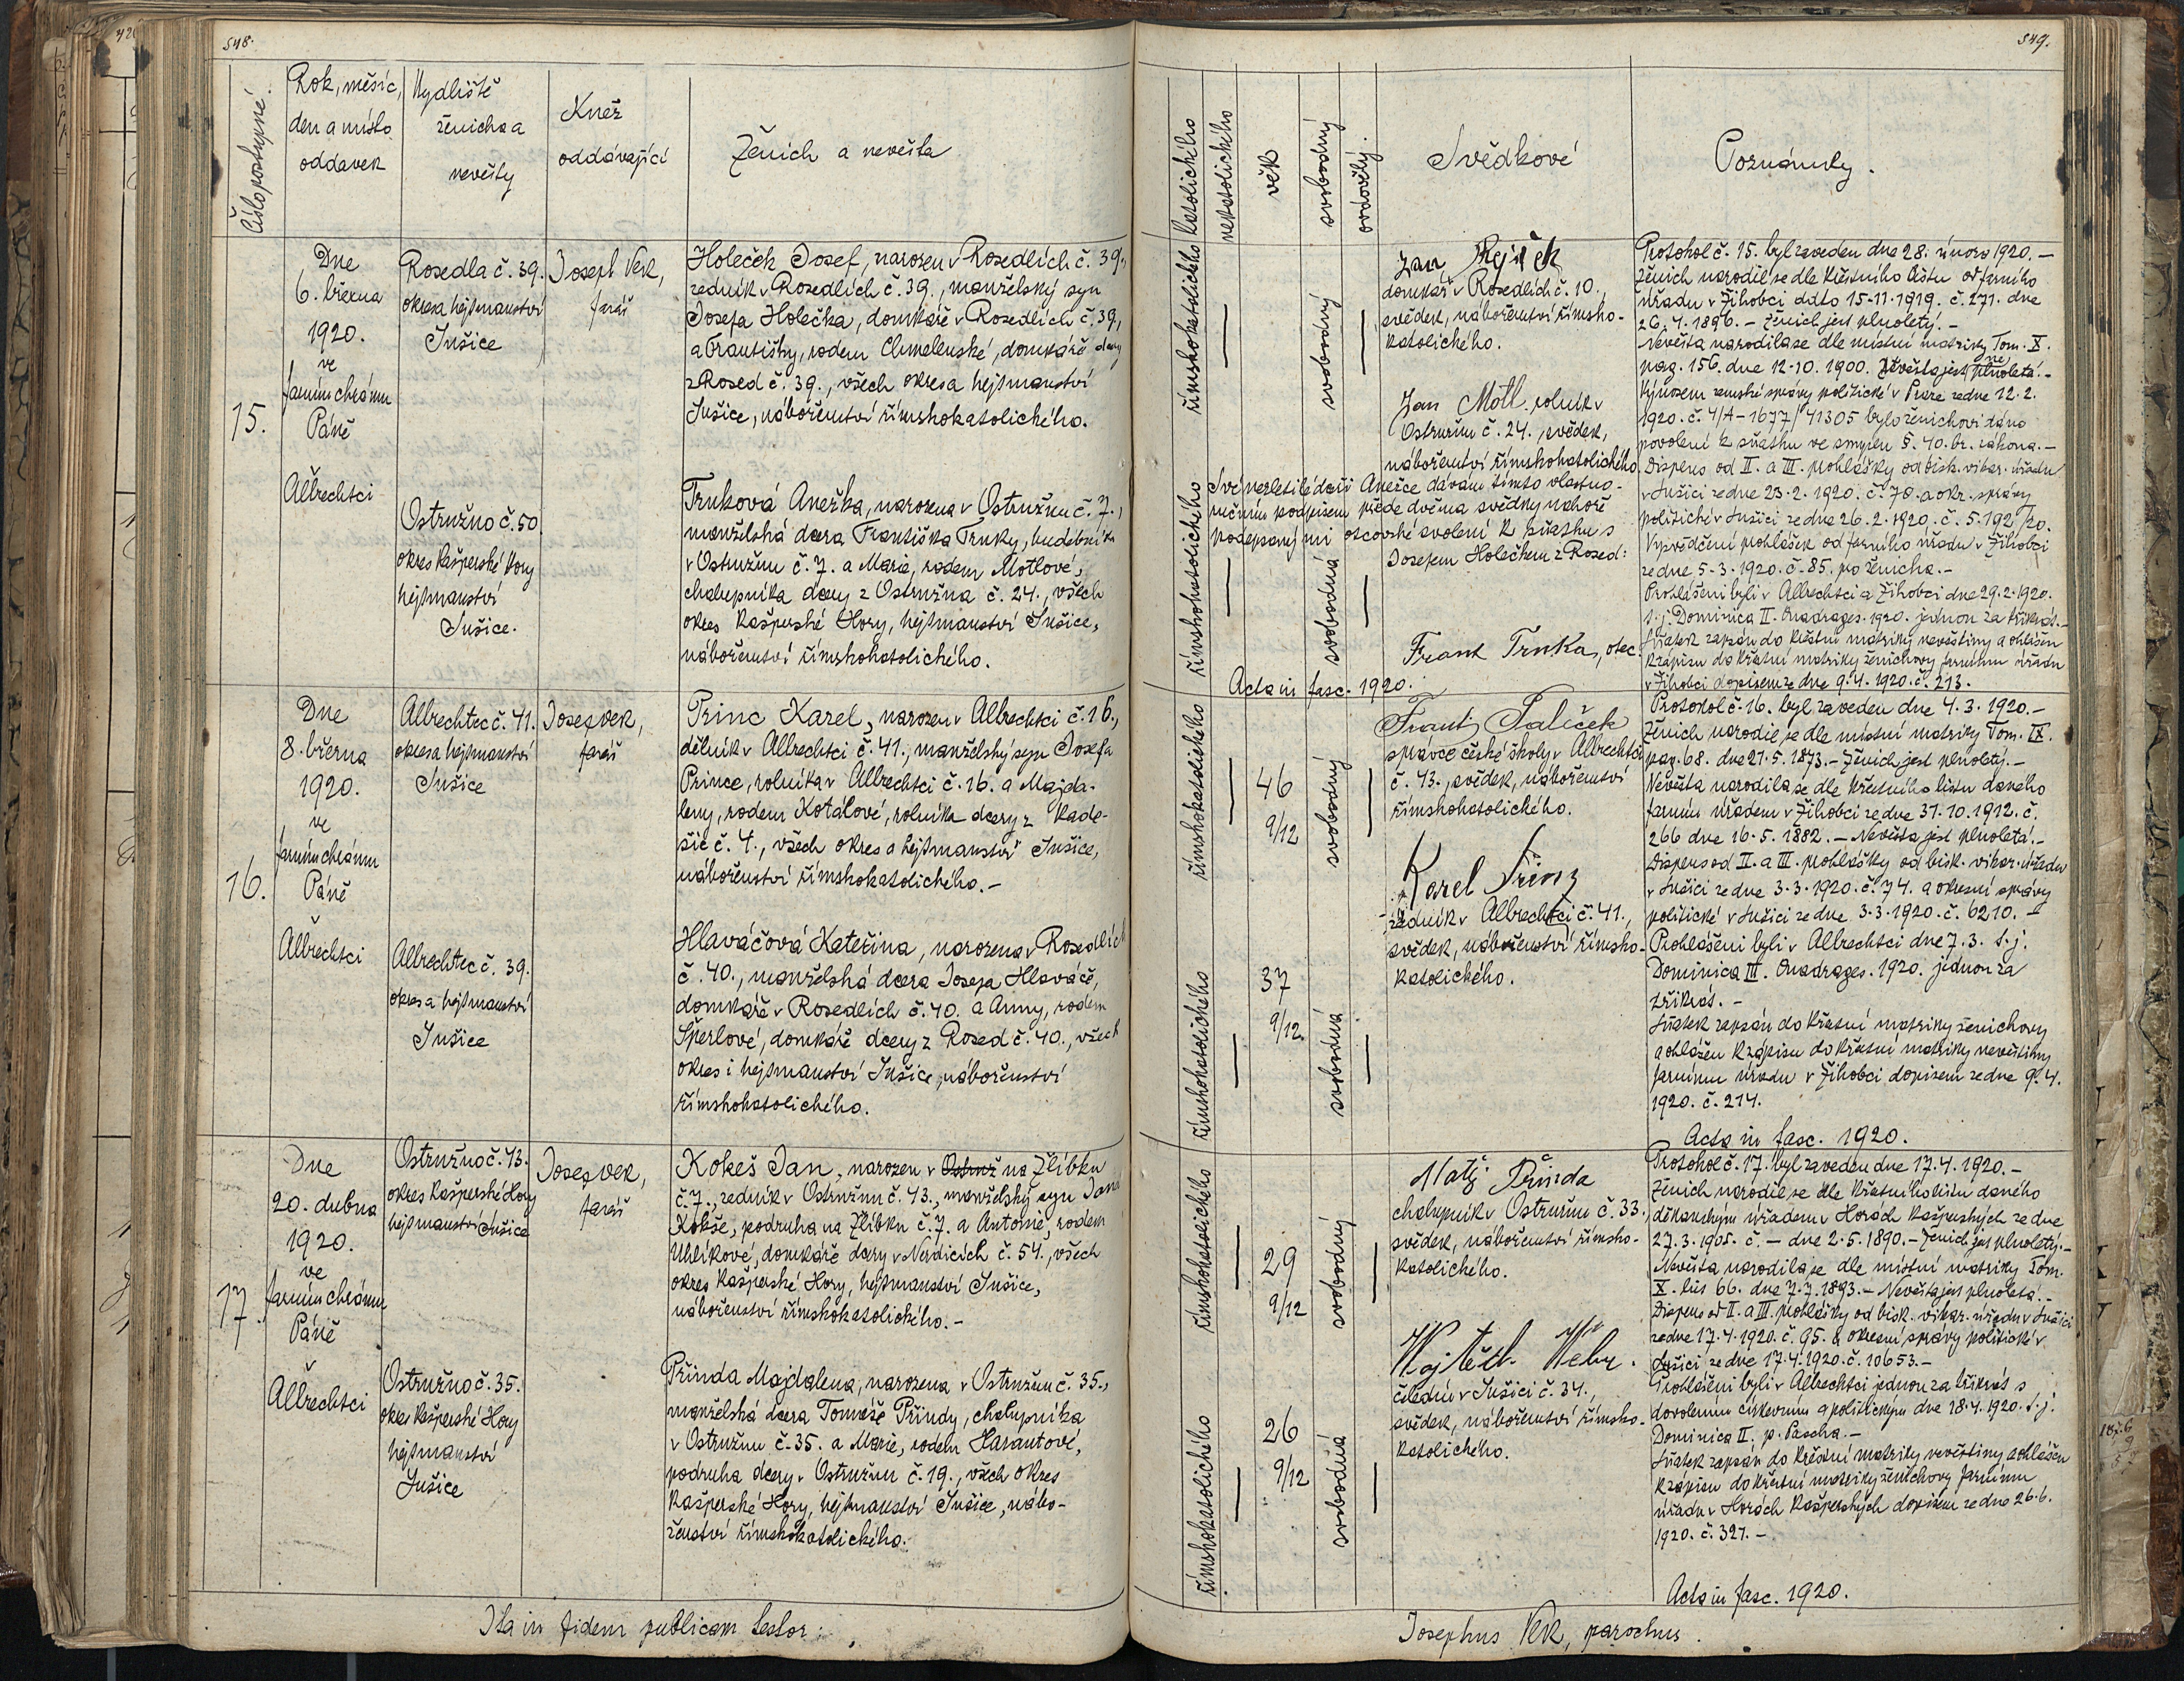 548.
Číslo postupné.
Rok, měsíc,
den a místo
oddavek
Bydliště
ženicha a
nevěsty
Kněz
oddávající
Ženich a nevěsta
15.
Dne
6. března
1920.
ve
farním chrámu
Páně
Albrechtci
Rosedla č. 39.
okres a hejtmanství
Sušice
Josef Vek,
farář
Holeček Josef, narozen v Rosedlích č. 39.,
zedník v Rosedlích č. 39., manželský syn
Josefa Holečka, domkáře v Rosedlích č. 39.,
a Františky, rodem Chmelenské, domkáře dcery
z Rosed č. 39., všech okres a hejtmanství
Sušice, náboženství římskokatolického.
Ostružno č. 50.
okres Kašperské Hory
hejtmanství
Sušice.
Trnková Anežka, narozena v Ostružnu č. 7.,
manželská dcera Františka Trnky, hudebníka
v Ostružnu č. 7. a Marie, rodem Motlové,
chalupníka dcery z Ostružna č. 24., všech
okres Kašperské Hory, hejtmanství Sušice,
náboženství římskokatolického.
16.
Dne
8. března
1920.
ve
farním chrámu
Páně
Albrechtci
Albrechtec č. 41.
okres a hejtmanství
Sušice
Josef Vek,
farář
Princ Karel, narozen v Albrechtci č. 16.,
dělník v Albrechtci č. 41., manželský syn Josefa
Prince, rolníka v Albrechtci č. 16. a Majda-
leny, rodem Kotálové, rolníka dcery z Kade-
šic č. 4., všech okres a hejtmanství Sušice,
náboženství římskokatolického.-
Albrechtec č. 39.
okres a hejtmanství
Sušice
Hlaváčová Kateřina, narozena v Rosedlích
č. 40., manželská dcera Josefa Hlaváče,
domkáře v Rosedlích č. 40. a Anny, rodem
Šperlové, domkáře dcery z Rosed č. 40., všech
okres i hejtmanství Sušice, náboženství
římskokatolického.
17.
Dne
20. dubna
1920.
ve
farním chrámu
Páně
Albrechtci
Ostružno č. 43.
okres Kašperské Hory
hejtmanství Sušice
Josef Vek,
farář
Kokeš Jan, narozen v Ostruž na Žlíbku
č. 7., zedník v Ostružnu č. 43., manželský syn Jana
Kokše, podruha na Žlíbku č. 7. a Antonie, rodem
Uhlíkové, domkáře dcery v Nezdicích č. 54., všech
okres Kašperské Hory, hejtmanství Sušice,
náboženství římskokatolického.-
Ostružno č. 35.
okres Kašperské Hory
hejtmanství
Sušice
Přinda Majdalena, narozena v Ostružnu č. 35.,
manželská dcera Tomáše Přindy, chalupníka
v Ostružnu č. 35. a Marie, rodem Harantové,
podruha dcery v Ostružnu č. 19., všech okres
Kašperské Hory, hejtmanství Sušice, nábo-
ženství římskokatolického.
Ita in fidem publicam testor:
549.
katolického
nekatolického
věk
svobodný
ovdovělý.
Svědkové
Poznámky.
římskokatolického
svobodný
Jan Rejšek
domkář v Rosedlích č. 10.,
svědek, náboženství římsko-
katolického.
Jan Motl rolník v
Ostružnu č. 24., svědek,
náboženství římskokatolického.
římskokatolického
svobodná
Své nezletilé dceři Anežce dávám tímto vlastno-
ručním podpisem přede dvěma svědky nahoře
podepsanými otcovské svolení k sňatku s
Josefem Holečkem z Rosed:
Frant Trnka, otec.
Acta in fasc. 1920.
Protokol č. 15. byl zaveden dne 28. února 1920.-
Ženich narodil se dle křestního listu od farního
úřadu v Žihobci ddto 15-11-1919. č. 271. dne
26. 4. 1896.- Ženich jest plnoletý.-
Nevěsta narodila se dle místní matriky Tom. X.
pag. 156. dne 12-10. 1900. Nevěsta jest neplnoletá.-
Výnosem zemské správy politické v Praze ze dne 12. 2.
1920. č. 4/A-1677/41305 bylo ženichovi dáno
povolení k sňatku ve smyslu §. 40. br. zákona.-
Dispens od II. a III. prohlášky od bisk. vikar. úřadu
v Sušici ze dne 23. 2. 1920. č. 70. a okr. správy
politické v Sušici ze dne 26. 2. 1920. č. 5.192/20.
Vysvědčení prohlášek od farního úřadu v Žihobci
ze dne 5-3-1920. č. 85. po ženicha.-
Prohlášeni byli v Albrechtci a Žihobci dne 29. 2. 1920.
t. j. Dominica II. Quadrages. 1920. jednou za třikrát.-
Sňatek zapsán do křestní matriky nevěstiny a ohlášen
k zápisu do křestní matriky ženichovy farnímu úřadu
v Žihobci dopisem ze dne 9. 4. 1920. č. 213.
římskokatolického
46
9/12
svobodný
Frant Paliček
správce české školy v Albrechtci
č. 43., svědek, náboženství
římskokatolického.
římskokatolického
37
9/12
svobodná
Karel Princ
zedník v Albrechtci č. 41.,
svědek, náboženství římsko-
katolického.
Protokol č. 16. byl zaveden dne 4. 3. 1920.-
Ženich narodil se dle místní matriky Tom. IX.
pag. 68. dne 21. 5. 1873.- Ženich jest plnoletý.-
Nevěsta narodila se dle křestního listu daného
farním úřadem v Žihobci ze dne 31. 10. 1912. č.
266 dne 16. 5. 1882.- Nevěsta jest plnoletá.-
Dispens od II. a III. prohlášky od bisk. vikar. úřadu
v Sušici ze dne 3. 3. 1920. č. 74. a okresní správy
politické v Sušici ze dne 3. 3. 1920. č. 6210.-
Prohlášeni byli v Albrechtci dne 7. 3. t. j.
Dominica III. Quadrages. 1920. jednou za
třikrát.-
Sňatek zapsán do křestní matriky ženichovy
a ohlášen k zápisu do křestní matriky nevěstiny
farnímu úřadu v Žihobci dopisem ze dne 9. 4.
1920. č. 214.
Acta in fasc. 1920.
římskokatolického
29
9/12
svobodný
Matěj Přinda
chalupník v Ostružnu č. 33.,
svědek, náboženství římsko-
katolického.
římskokatolického
26
9/12
svobodná
Vojtěch
čeledín v Sušici č. 34.,
svědek, náboženství římsko-
katolického.
Protokol č. 17. byl zaveden dne 17. 4. 1920.-
Ženich narodil se dle křestního listu daného
děkanským úřadem v Horách Kašperských ze dne
27. 3. 1905. č. - dne 2. 5. 1890.- Ženich jest plnoletý.-
Nevěsta narodila se dle místní matriky Tom.
X. lis 66. dne 7. 7. 1893.- Nevěsta jest plnoletá.-
Dispens od II. a III. prohlášky od bisk. vikar. úřadu v Sušici
ze dne 17. 4. 1920. č. 95. a okresní správy politické v
Sušici ze dne 17. 4. 1920. č. 10653.-
Prohlášeni byli v Albrechtci jednou za třikrát s
dovolením církevním a politickým dne 18. 4. 1920. t. j.
Dominica II. p. Pascha.-
Sňatek zapsán do křestní matriky nevěstiny a ohlášen
k zápisu do křestní matriky ženichovy farnímu
úřadu v Horách Kašperských dopisem ze dne 26. 6.
1920. č. 327.-
Acta in fasc. 1920.
Josephus Vek, parochus.